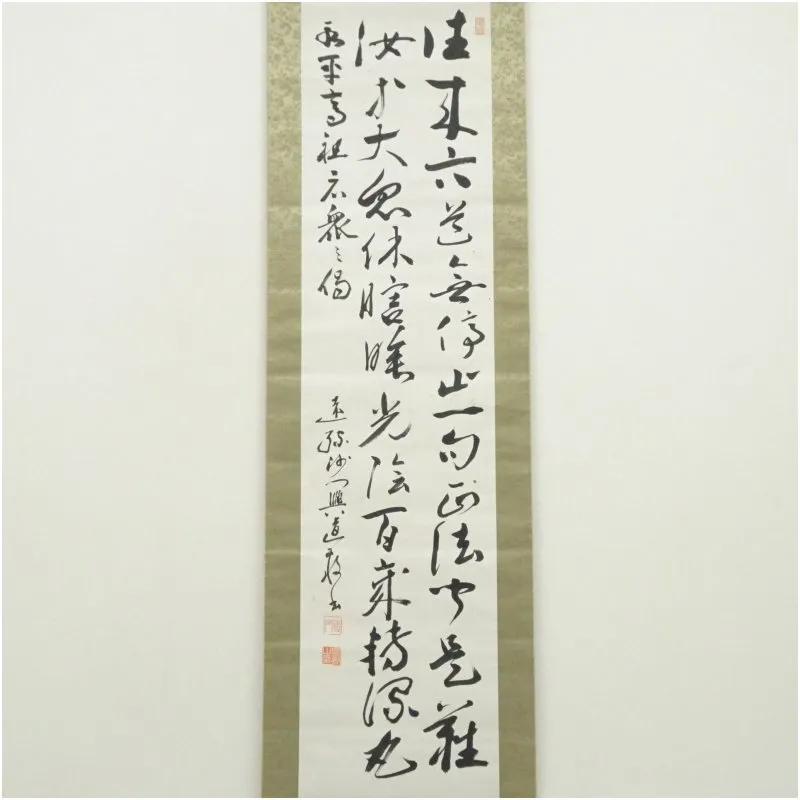 往来六道無停止一句正法聞是難
汝等大衆休瞎睡光陰百歳轉丸
永平高祖示衆之偈
遠孫沙門興道書